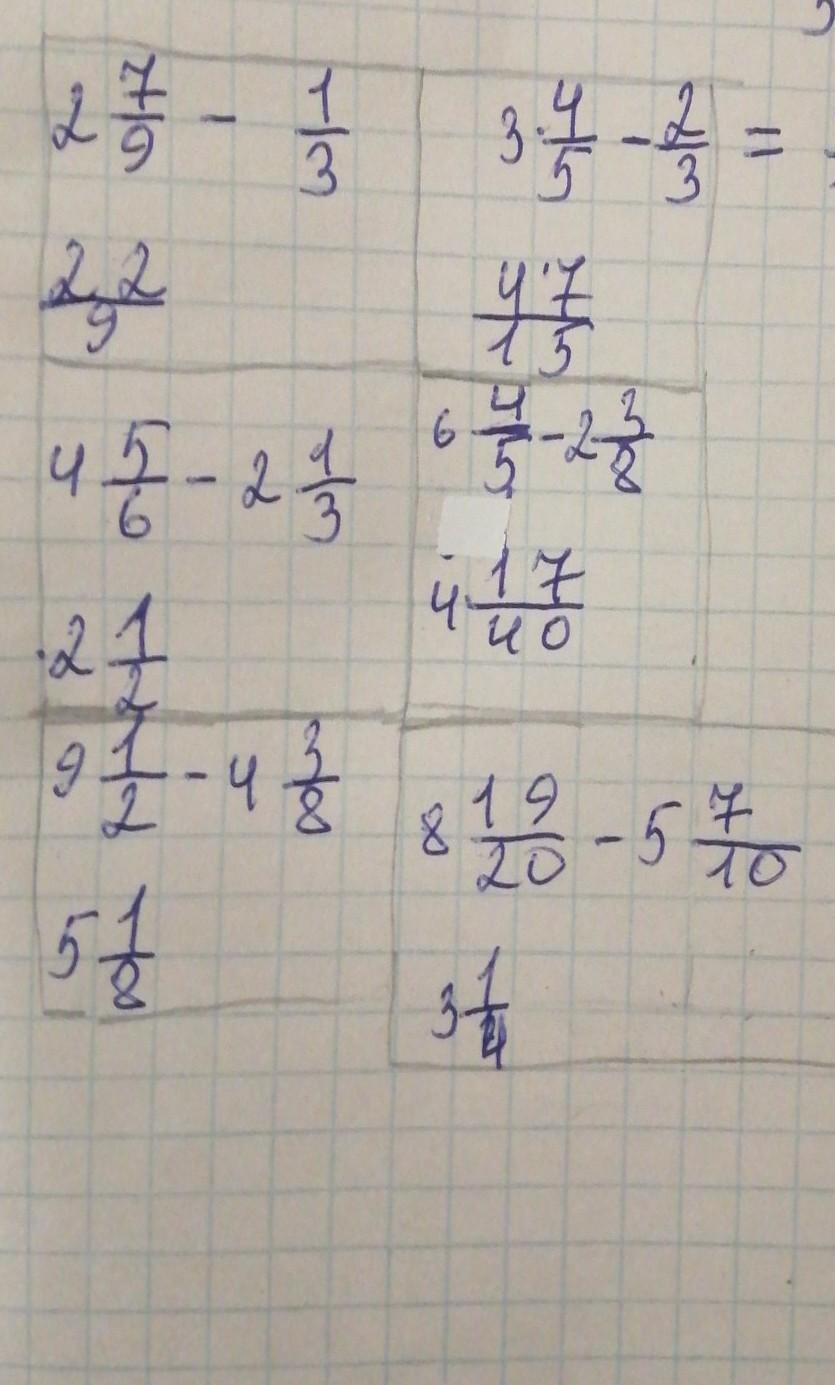 2 7/9 - 1/3
22/9
3 4/5 - 2/3 =
47/15
4 5/6 - 2 1/3
2 1/2
6 4/5 - 2 3/8
4 17/40
9 1/2 - 4 3/8
5 1/8
8 19/20 - 5 7/10
3 1/4